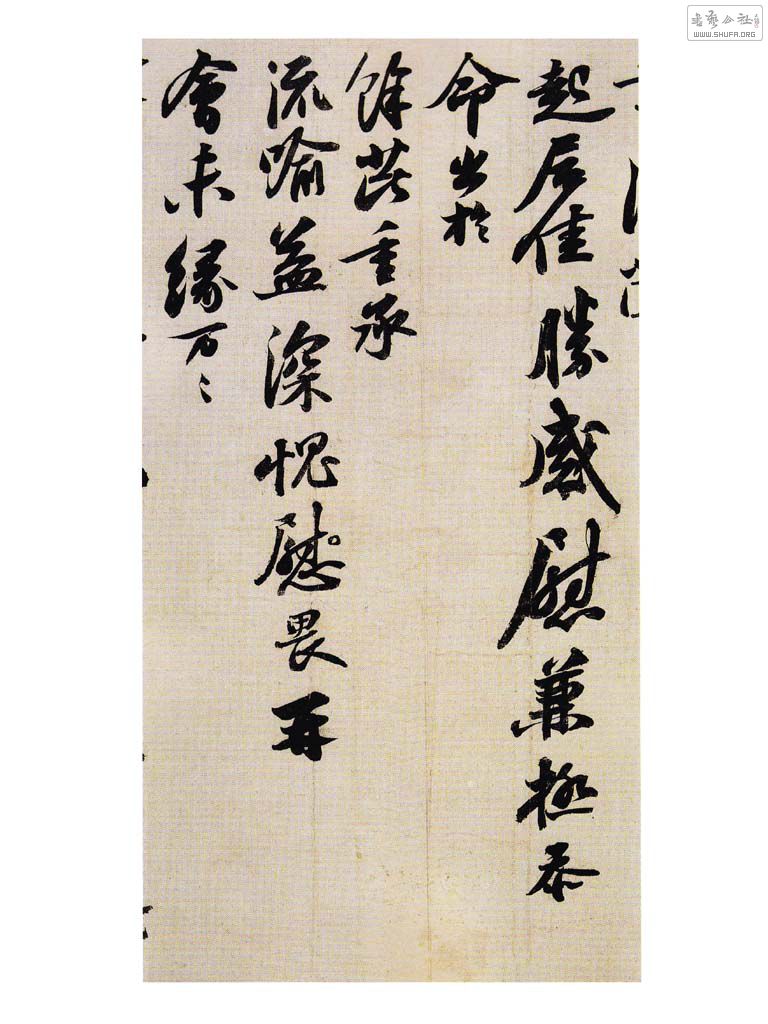 起居佳勝感慰兼極忝
命出於
餘芘重承
流喻益深愧慰畏再
會未緣万〻
書藝公社
WWW.SHUFA.ORG